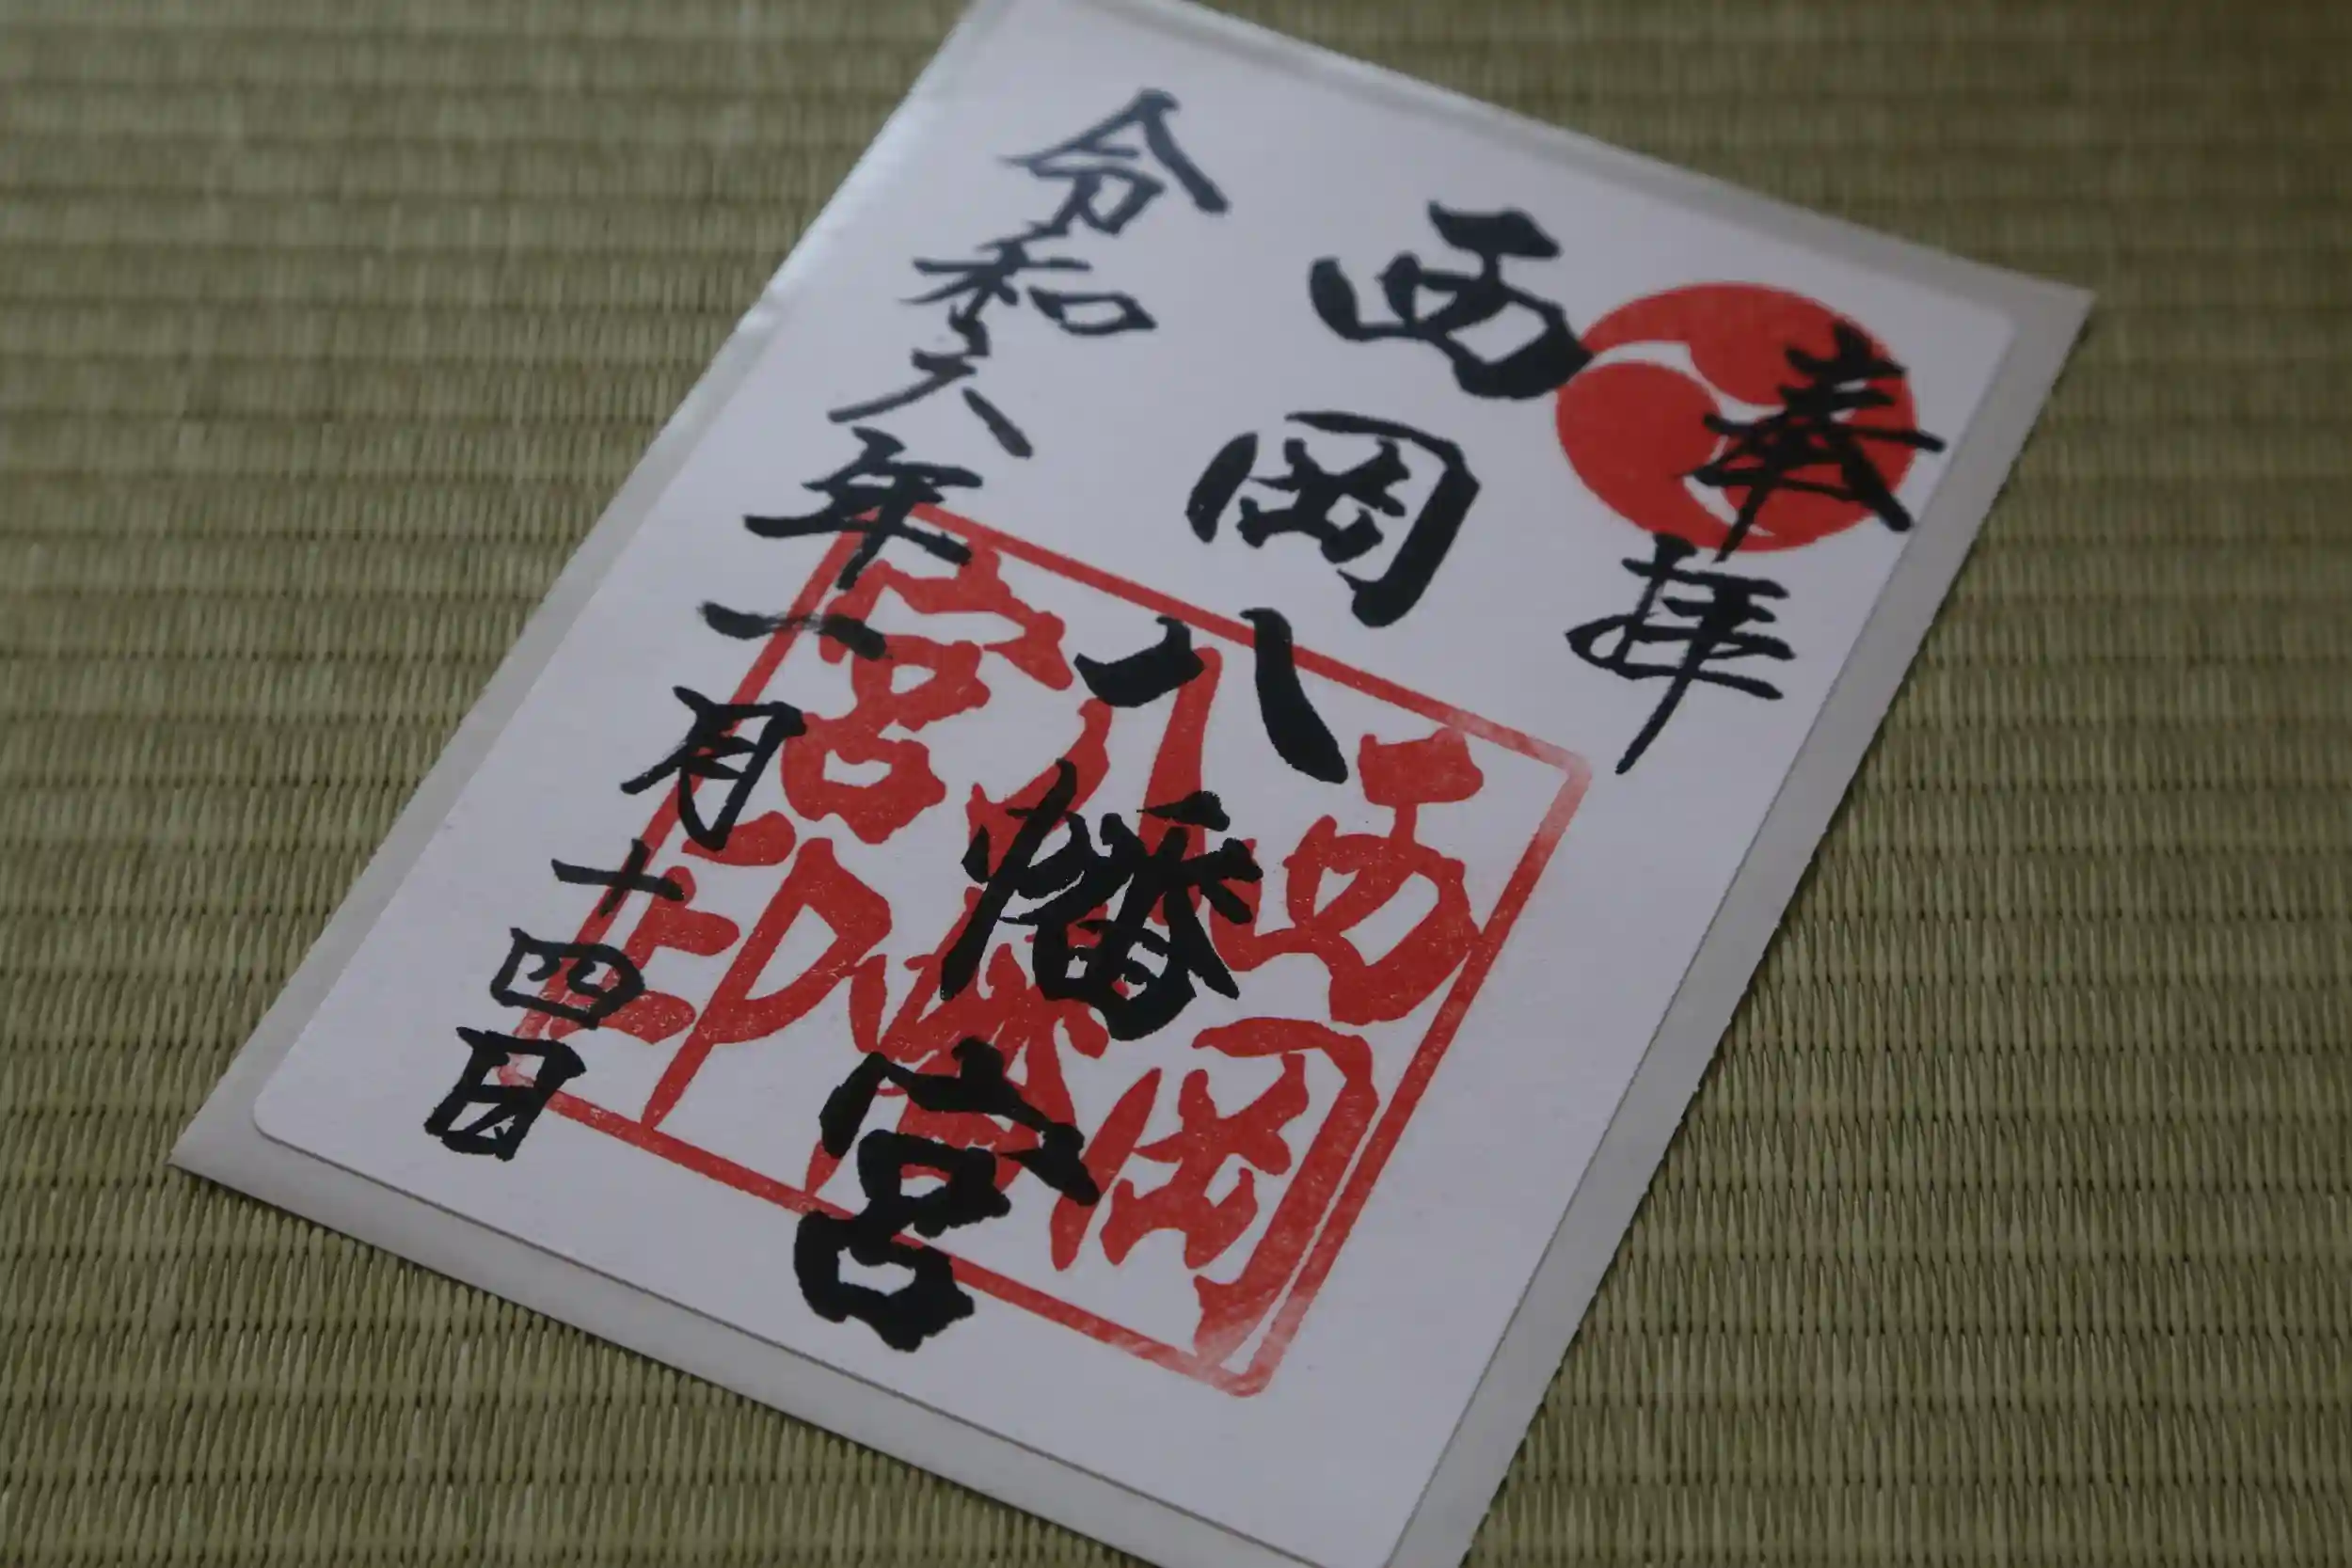 奉拝
西岡八幡宮
令和六年一月十四日
西岡
八幡
宮印